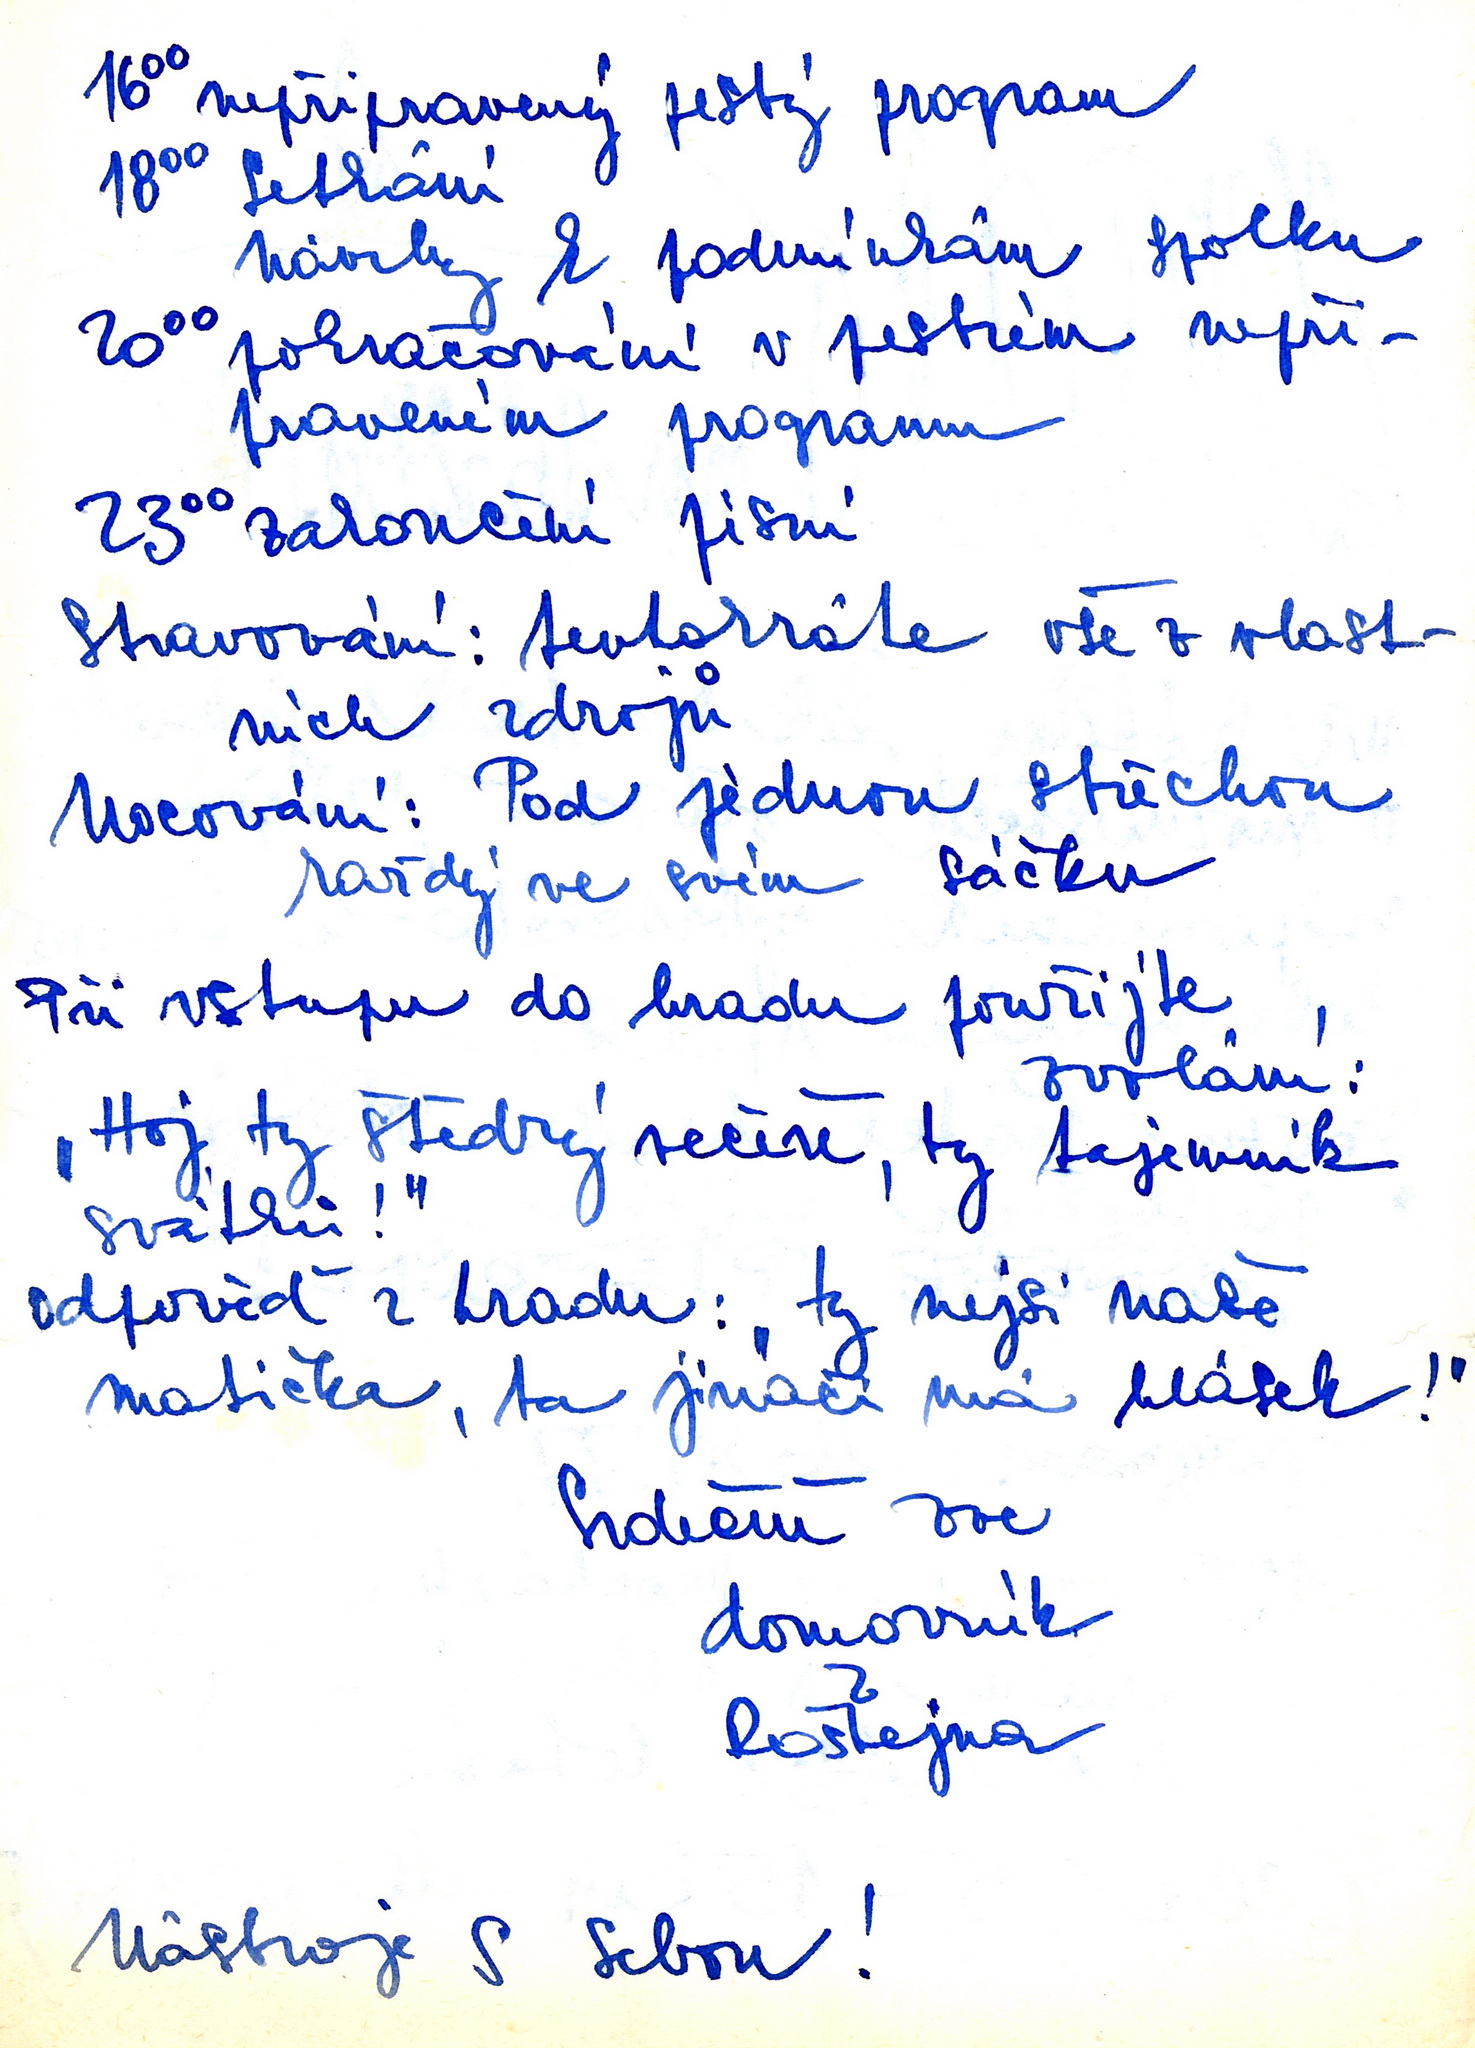 16⁰⁰ nepřipravený pestrý program
18⁰⁰ Setkání
Návrhy k podmínkám spolku
20⁰⁰ pokračování v pestrém nepři-
praveném programu
23⁰⁰ zakončení písní
Stravování: tentokráte vše z vlast-
ních zdrojů
Nocování: Pod jednou střechou
každý ve svém sáčku
Při vstupu do hradu použijte
zvolání:
„Hoj, ty štědrý večeře, ty tajemník
svátků!"
odpověď z hradu: „ty nejsi naše
matička, ta jináčí má hlásek!"
Srdečně zve
domovník
z
Roštejna
Nástroje s sebou!